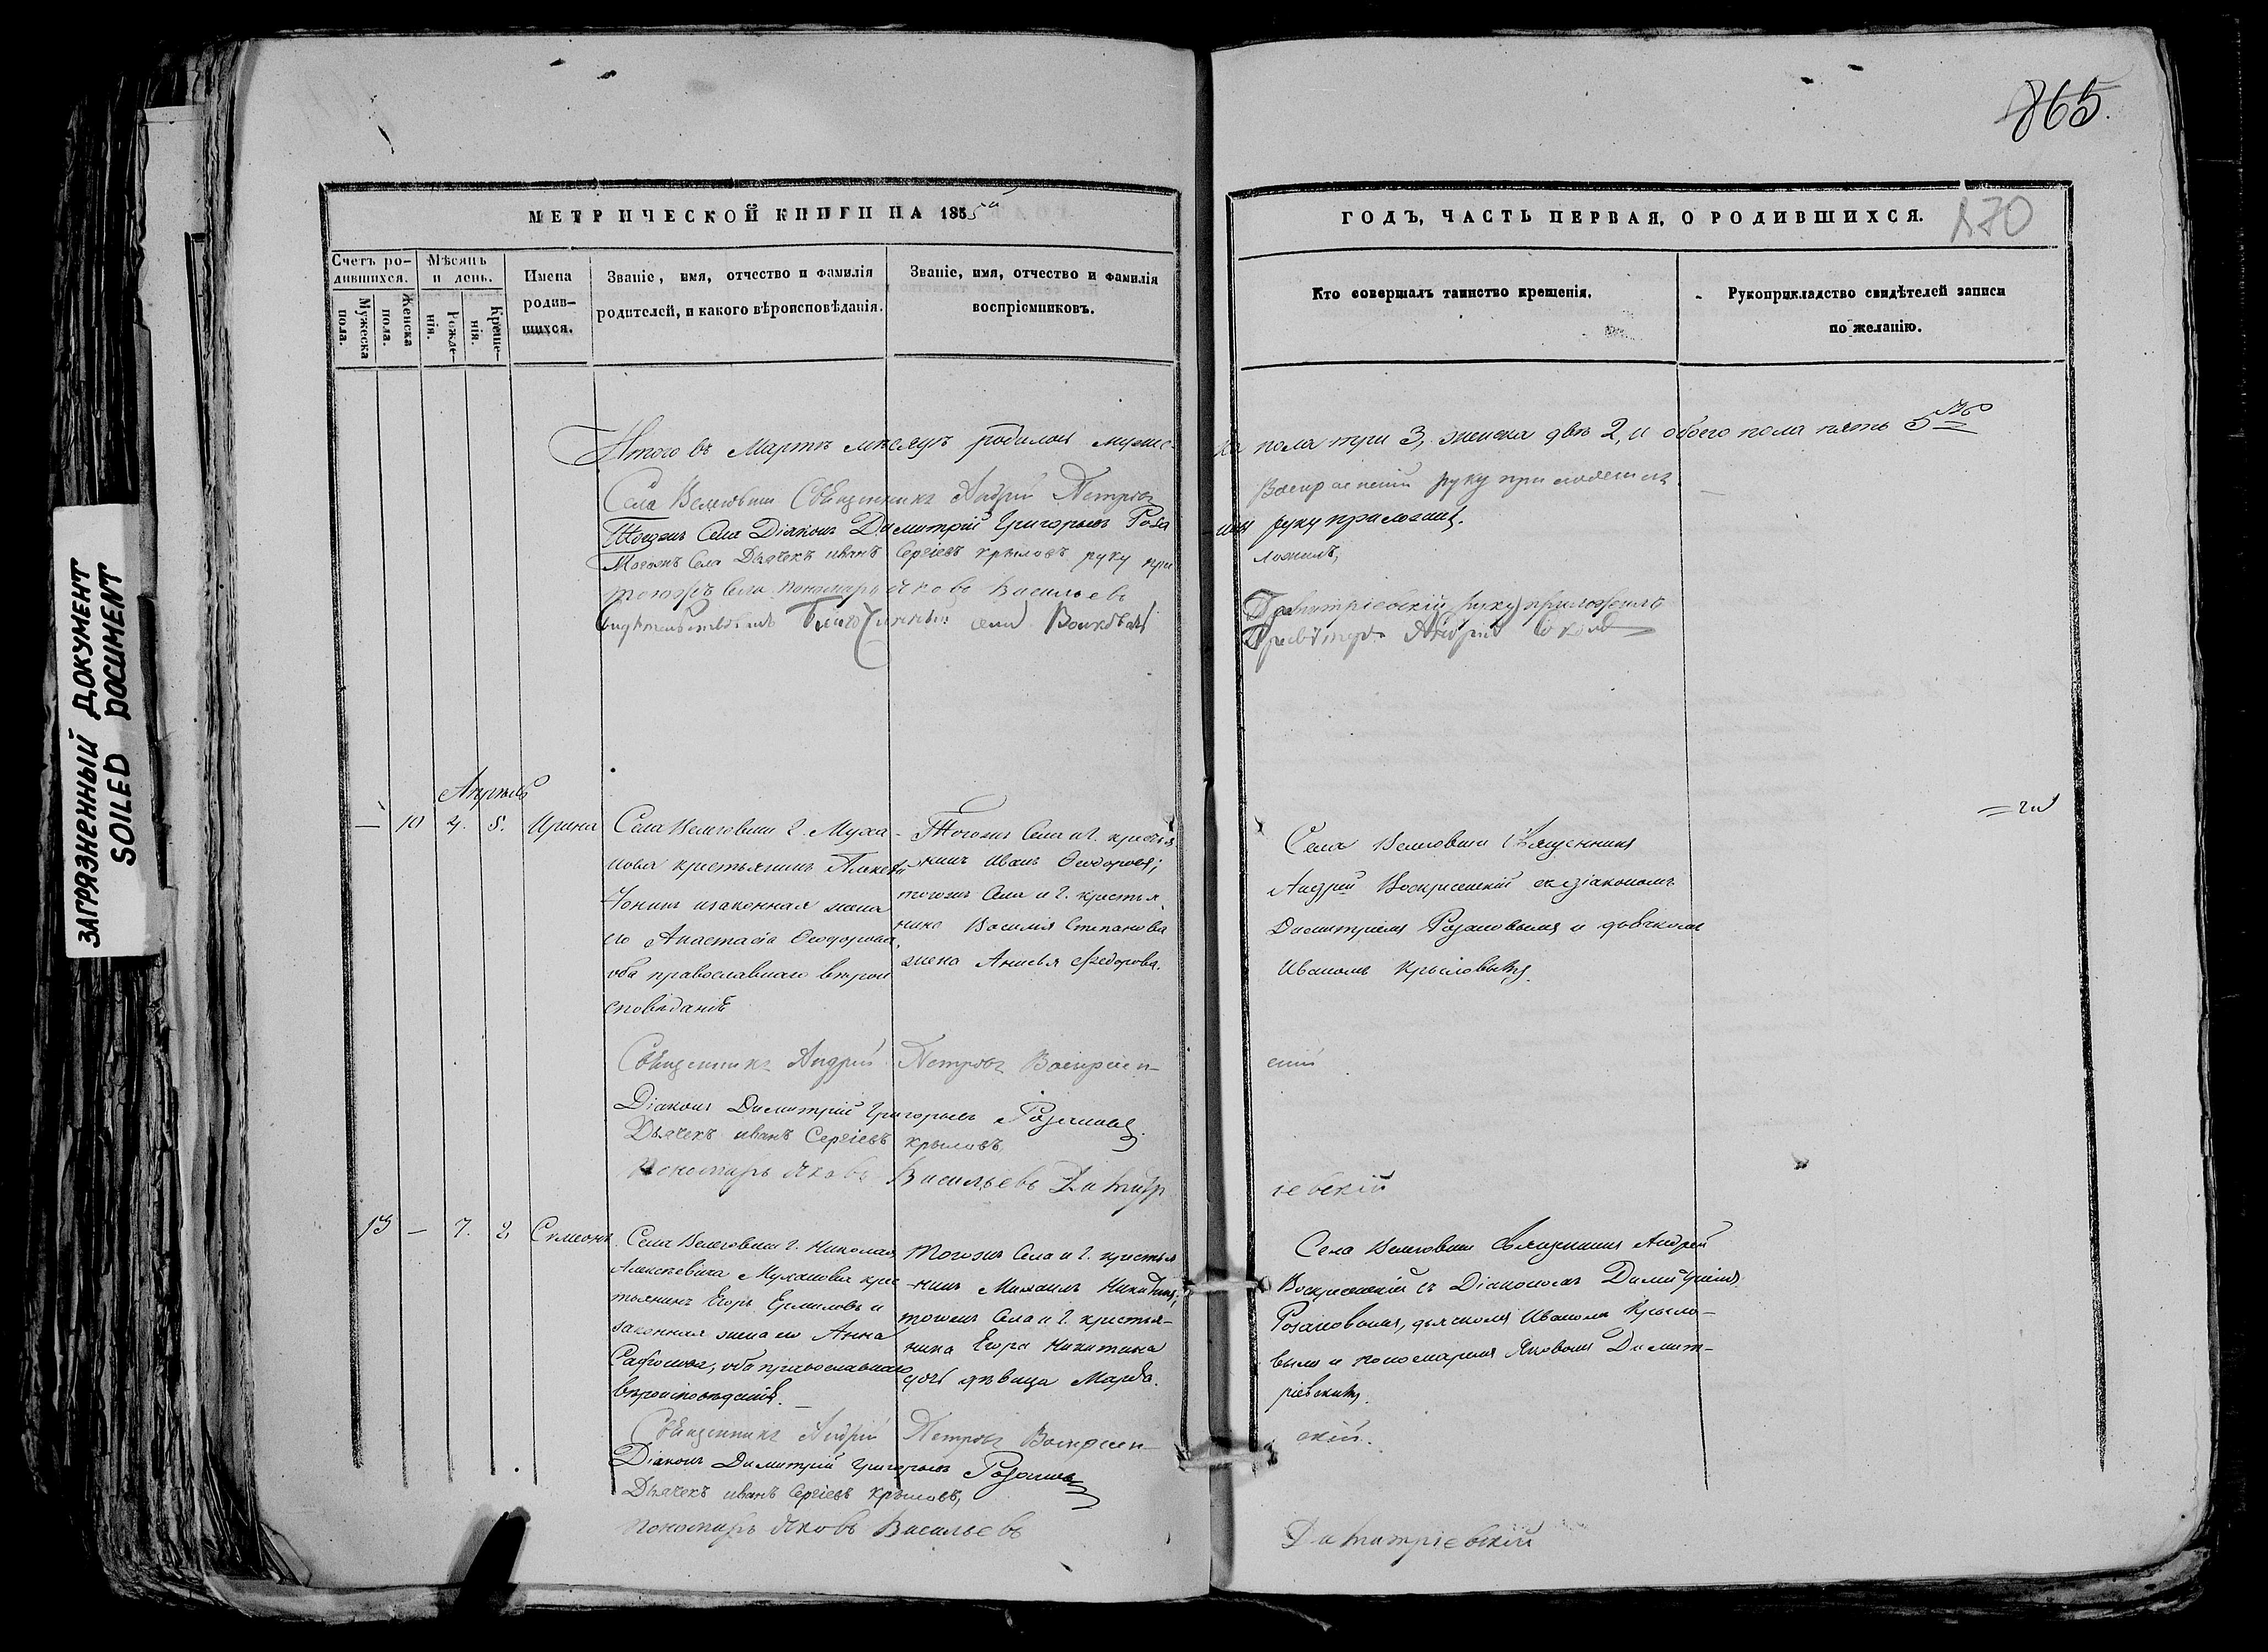 865.
МЕТРИЧЕСКОЙ КНИГИ НА 1855й
ГОДЪ, ЧАСТЬ ПЕРВАЯ, О РОДИВШИХСЯ.
170
Счетъ родившихся.
Мужеска пола.
Женска пола.
Мѣсяцъ и день.
Рожденія.
Крещенія.
Имена родившихся.
Званіе, имя, отчество и фамилія
родителей, и какого вѣроисповѣданія.
Званіе, имя, отчество и фамилія
воспріемниковъ.
Кто совершалъ таинство крещенія.
Рукоприкладство свидѣтелей записи
по желанію.
Итого въ Мартѣ мѣсяцѣ родилось мужес-
ка пола три 3, женска двѣ 2, и обоего пола пять 5
Села Священникъ Андрей Петровъ
Воскресенскій руку приложилъ
Тогожъ Села Діаконъ Димитрій Григорьевъ Роза
новъ руку приложилъ.
Тогожъ Села Дьячекъ иванъ Сергіевъ крыловъ руку при
ложилъ,
тогожъ Села пономарь Яковъ Васильевъ
Димитріевскій руку приложилъ
Свидѣтельствовалъ Благочинный села
Андрей
Апрѣль
— 10 4. 5. Ирина
Села г. Муха-
нова крестьянинъ Алексѣй
и законная жена
его Анастасія Ѳеодорова,
оба православнаго вѣрои
сповѣданія
Тогожъ Села и г. крестья
нинъ Иванъ Ѳеодоровъ;
тогожъ Села и г. крестья-
нина Василія Степанова
жена Анисья Ѳедорова.
Села Священникъ
Андрей Воскресенскій съ діакономъ
Димитріемъ Розановымъ и дьячкомъ
Иваномъ Крыловымъ.
Священникъ Андрей Петровъ Воскресен-
скій
Діаконъ Димитрій Григорьевъ Розановъ.
Дьячекъ иванъ Сергіевъ крыловъ,
Пономарь Яковъ Васильевъ Димитр
іевскій
13 — 7. Симеонъ
Села г. Николая
Алексѣевича Муханова крес
тьянинъ Егоръ Ермиловъ и
законная жена его Анна
оба православнаго
вѣроисповѣданія.
Тогожъ Села и г. крестья
-нинъ Михаилъ Никитинъ;
тогожъ Села и г. крестья-
нина Егора Никитина
дочь дѣвица Марѳа.
Села Священникъ Андрей
Воскресенскій съ Діакономъ Димитріемъ
Розановымъ, дьячкомъ Иваномъ Крыло-
вымъ и пономаремъ Яковомъ Димит-
ріевскимъ.
Священникъ Андрей Петровъ Воскресен-
скій.
Діаконъ Димитрій Григорьевъ Розановъ
Дьячекъ иванъ Сергіевъ крыловъ,
пономарь Яковъ Васильевъ
Димитріевскій
ЗАГРЯЗНЕННЫЙ ДОКУМЕНТ
SOILED DOCUMENT